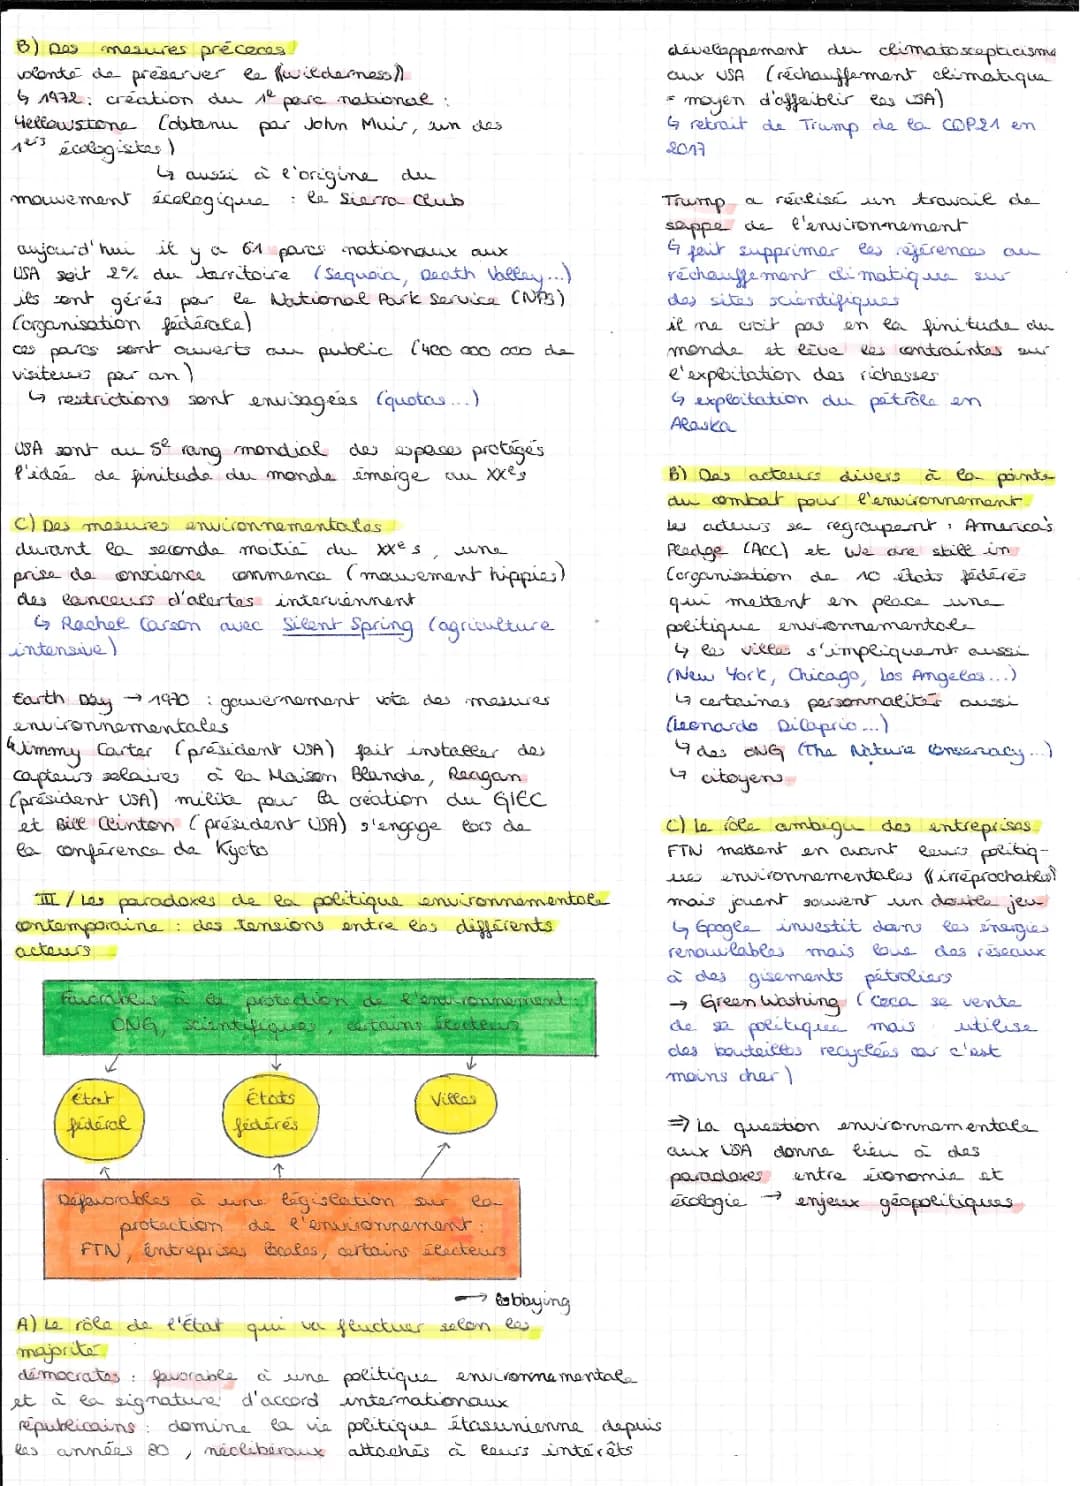 B) Des mesures précoces
volonté de préserver la «wilderness»
↳ 1972 : création du 1e parc national :
Yellowstone (obtenu par John Muir, un des
1ers écologistes)
↳ aussi à l'origine du
mouvement écologique : le Sierra Club
aujourd'hui il y a 61 parcs nationaux aux
USA soit 2% du territoire (Sequoia, Death Valley...)
ils sont gérés par le National Park Service (NPS)
(organisation fédérale)
ces parcs sont ouverts au public (400 000 000 de
visiteurs par an)
↳ restrictions sont envisagées (quotas...)
USA sont au 5e rang mondial des espaces protégés
l'idée de finitude du monde émerge au XXe s
C) Des mesures environnementales
durant la seconde moitié du XXe s, une
prise de conscience commence (mouvement hippies)
des lanceurs d'alertes interviennent
↳ Rachel Carson avec Silent Spring (agriculture
intensive)
Earth Day → 1970 : gouvernement vote des mesures
environnementales
↳ Jimmy Carter (président USA) fait installer des
capteurs solaires à la Maison Blanche, Reagan
(président USA) milite pour la création du GIEC
et Bill Clinton (président USA) s'engage lors de
la conférence de Kyoto
III / Les paradoxes de la politique environnementale
contemporaine : des tensions entre les différents
acteurs
Favorables à la protection de l'environnement :
ONG, scientifiques, certains électeurs
État
fédéral
États
fédérés
Villes
Défavorables à une législation sur la
protection de l'environnement :
FTN, entreprises locales, certains électeurs
→ lobbying
A) Le rôle de l'État qui va fluctuer selon les
majorité
démocrates : favorable à une politique environnementale
et à la signature d'accord internationaux
républicains : domine la vie politique étasunienne depuis
les années 80, néolibéraux attachés à leurs intérêts
développement du climatoscepticisme
aux USA (réchauffement climatique
= moyen d'affaiblir les USA)
↳ retrait de Trump de la COP21 en
2017
Trump a réalisé un travail de
sappe de l'environnement
↳ fait supprimer les références au
réchauffement climatique sur
des sites scientifiques
il ne croit pas en la finitude du
monde et lève les contraintes sur
l'exploitation des richesses
↳ exploitation du pétrôle en
Alaska
B) Des acteurs divers à la pointe
du combat pour l'environnement
les acteurs se regroupent : America's
Pledge (ACC) et We are still in
(organisation de 10 états fédérés
qui mettent en place une
politique environnementale
↳ les villes s'impliquent aussi
(New York, Chicago, Los Angeles...)
↳ certaines personnalités aussi
(Leonardo DiCaprio...)
↳ des ONG (The Nature Conservacy...)
↳ citoyens
C) Le rôle ambigu des entreprises
FTN mettent en avant leurs politiq-
ues environnementales «irréprochables»
mais jouent souvent un double jeu
↳ Google investit dans les énergies
renouvlables mais loue des réseaux
à des gisements pétroliers
→ Green Washing (Coca se vente
de sa politique mais utilise
des bouteilles recyclées car c'est
moins cher)
⇒ La question environnementale
aux USA donne lieu à des
paradoxes entre économie et
écologie → enjeux géopolitiques